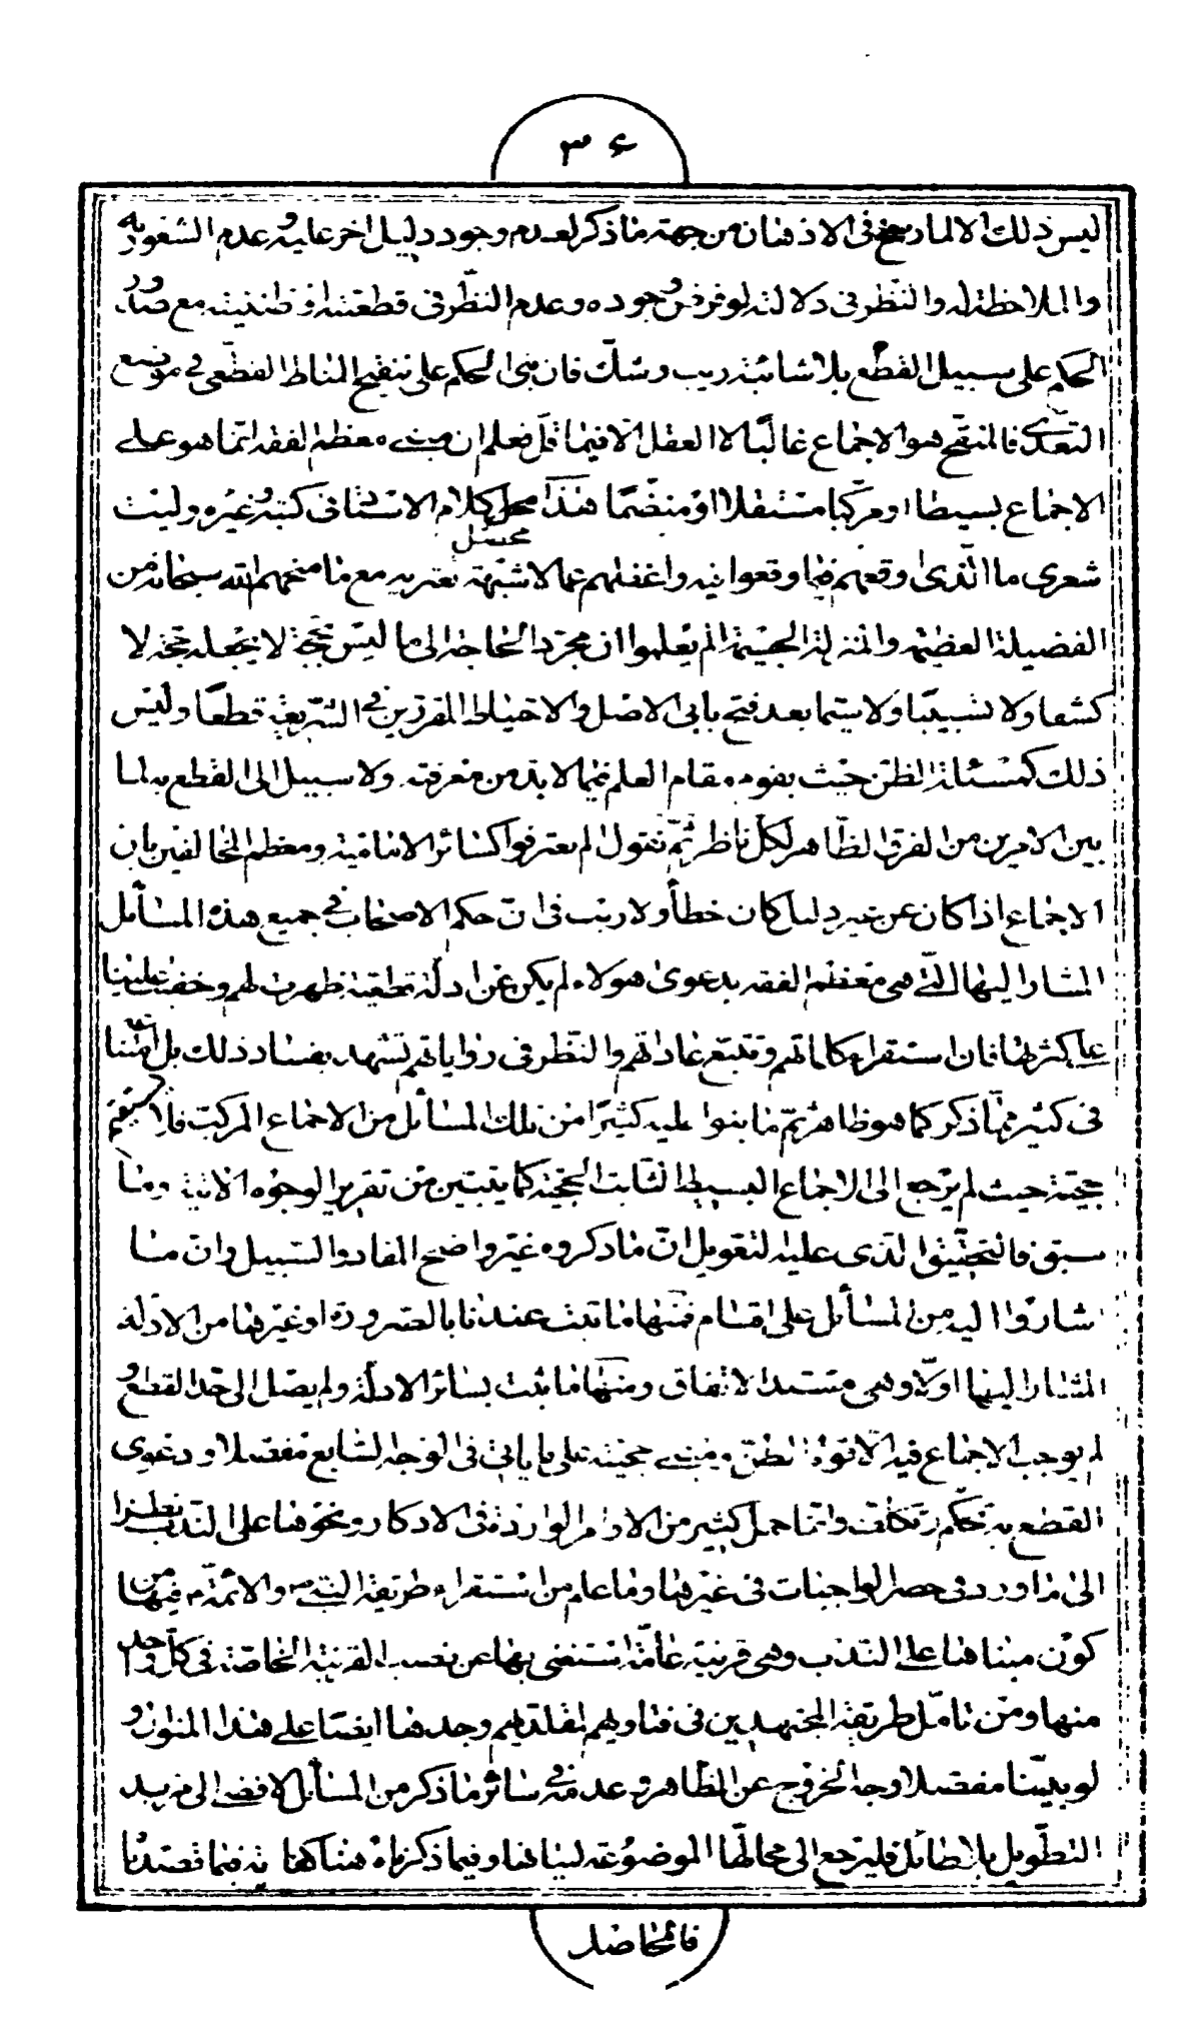 ٣۶
ليس ذلك الا لما رسخ فى الاذهان من جهة ما ذكر لعدم وجود دليل اخر عليه و عدم الشعور به
والملاحظة له والنظر فى دلالته لو فرض وجوده وعدم النظر فى قطعيته او ظنيته مع صدور
الحكم على سبيل القطع بلا شائبة ريب وشك فان بنى الحكم على تنقيح المناط القطعى فى موضع
التعدى فالمنقح هو الاجماع غالبًا لا العقل الا فيما قل فعلم ان مبنى معظم الفقه انما هو على
الاجماع بسيطا او مركبا مستقلا او منضمًا هذا محصل كلام الاستاد فى كتبه وغيره وليت
محصل
شعرى ما الذى اوقعهم فيما وقعوا فيه واغفلهم عما لا شبهة تعتريه مع ما منحهم الله سبحانه من
الفضيلة العظيمة والمنزلة الجسيمة الم يعلموا ان مجرد الحاجة الى ما ليس بحجة لا يجعله حجة لا
كشفا ولا تسبيبًا ولا سيما بعد فتح بابى الاصل والاحتياط المقررين فى الشريعة قطعًا وليس
ذلك كمسئلة الظن حيث يقوم مقام العلم فيما لا بد من معرفته ولا سبيل الى القطع به لما
بين الامرين من الفرق الظاهر لكل ناظر ثم نقول الم يعترفوا كسائر الامامية ومعظم المخالفين بان
الاجماع اذا كان عن غير دليل كان خطأ ولا ريب فى ان حكم الاصحاب فى جميع هذه المسائل
المشار اليها التى هى معظم الفقه بدعوى هولاء لم يكن عن ادلة قطعية ظهرت لهم وخفيت علينا
على كثرتها فان استقراء كلماتهم وتتبع عاداتهم والنظر فى رواياتهم تشهد بفساد ذلك بل
فى كثير مما ذكر كما هو ظاهر ثم ما بنوا عليه كثيرًا من تلك المسائل من الاجماع المركب فلا يستقيم
حجيته حيث لم يرجع الى الاجماع البسيط الثابت الحجية كما يتبين من تقرير الوجوه الاتية وما
سبق فالتحقيق الذى عليه التعويل ان ما ذكروه غير واضح المفاد والسبيل وان ما
شاروا اليه من المسائل على اقسام فمنها ما ثبت عندنا بالضرورة او غيرها من الادلة
المشار اليها اولا وهى مستند الاتفاق ومنها ما ثبت بسائر الادلة ولم يصل الى حد القطع و
لم يوجب الاجماع فيه الا قوة الظن ومبنى حجيته على ما ياتى فى الوجه السابع مفصلا ودعوى
القطع به تحكم وتكلف وانما حمل كثير من الاوامر الواردة فى الاذكار ونحوها على الندب نظرا
الى ما ورد فى حصر الواجبات فى غيرها وما علم من استقراء طريقة النبى ص والائمة ع فيها من
كون مبناها على الندب وهى قرينة عامة يستغنى بها عن نصب القرينة الخاصة فى كل واحد
منها ومن تامل طريقة المجتهدين فى فتاويهم لمقلديهم وجدها ايضا على هذا المنوال و
لو بينا مفصلا وجه الخروج عن الظاهر وعدمه فى سائر ما ذكر من المسائل لافضى الى مزيد
التطويل بلا طائل فليرجع الى محالها الموضوعة لبيانها وفيما ذكرناه هنا كفاية فيما قصدنا
فالحاصل